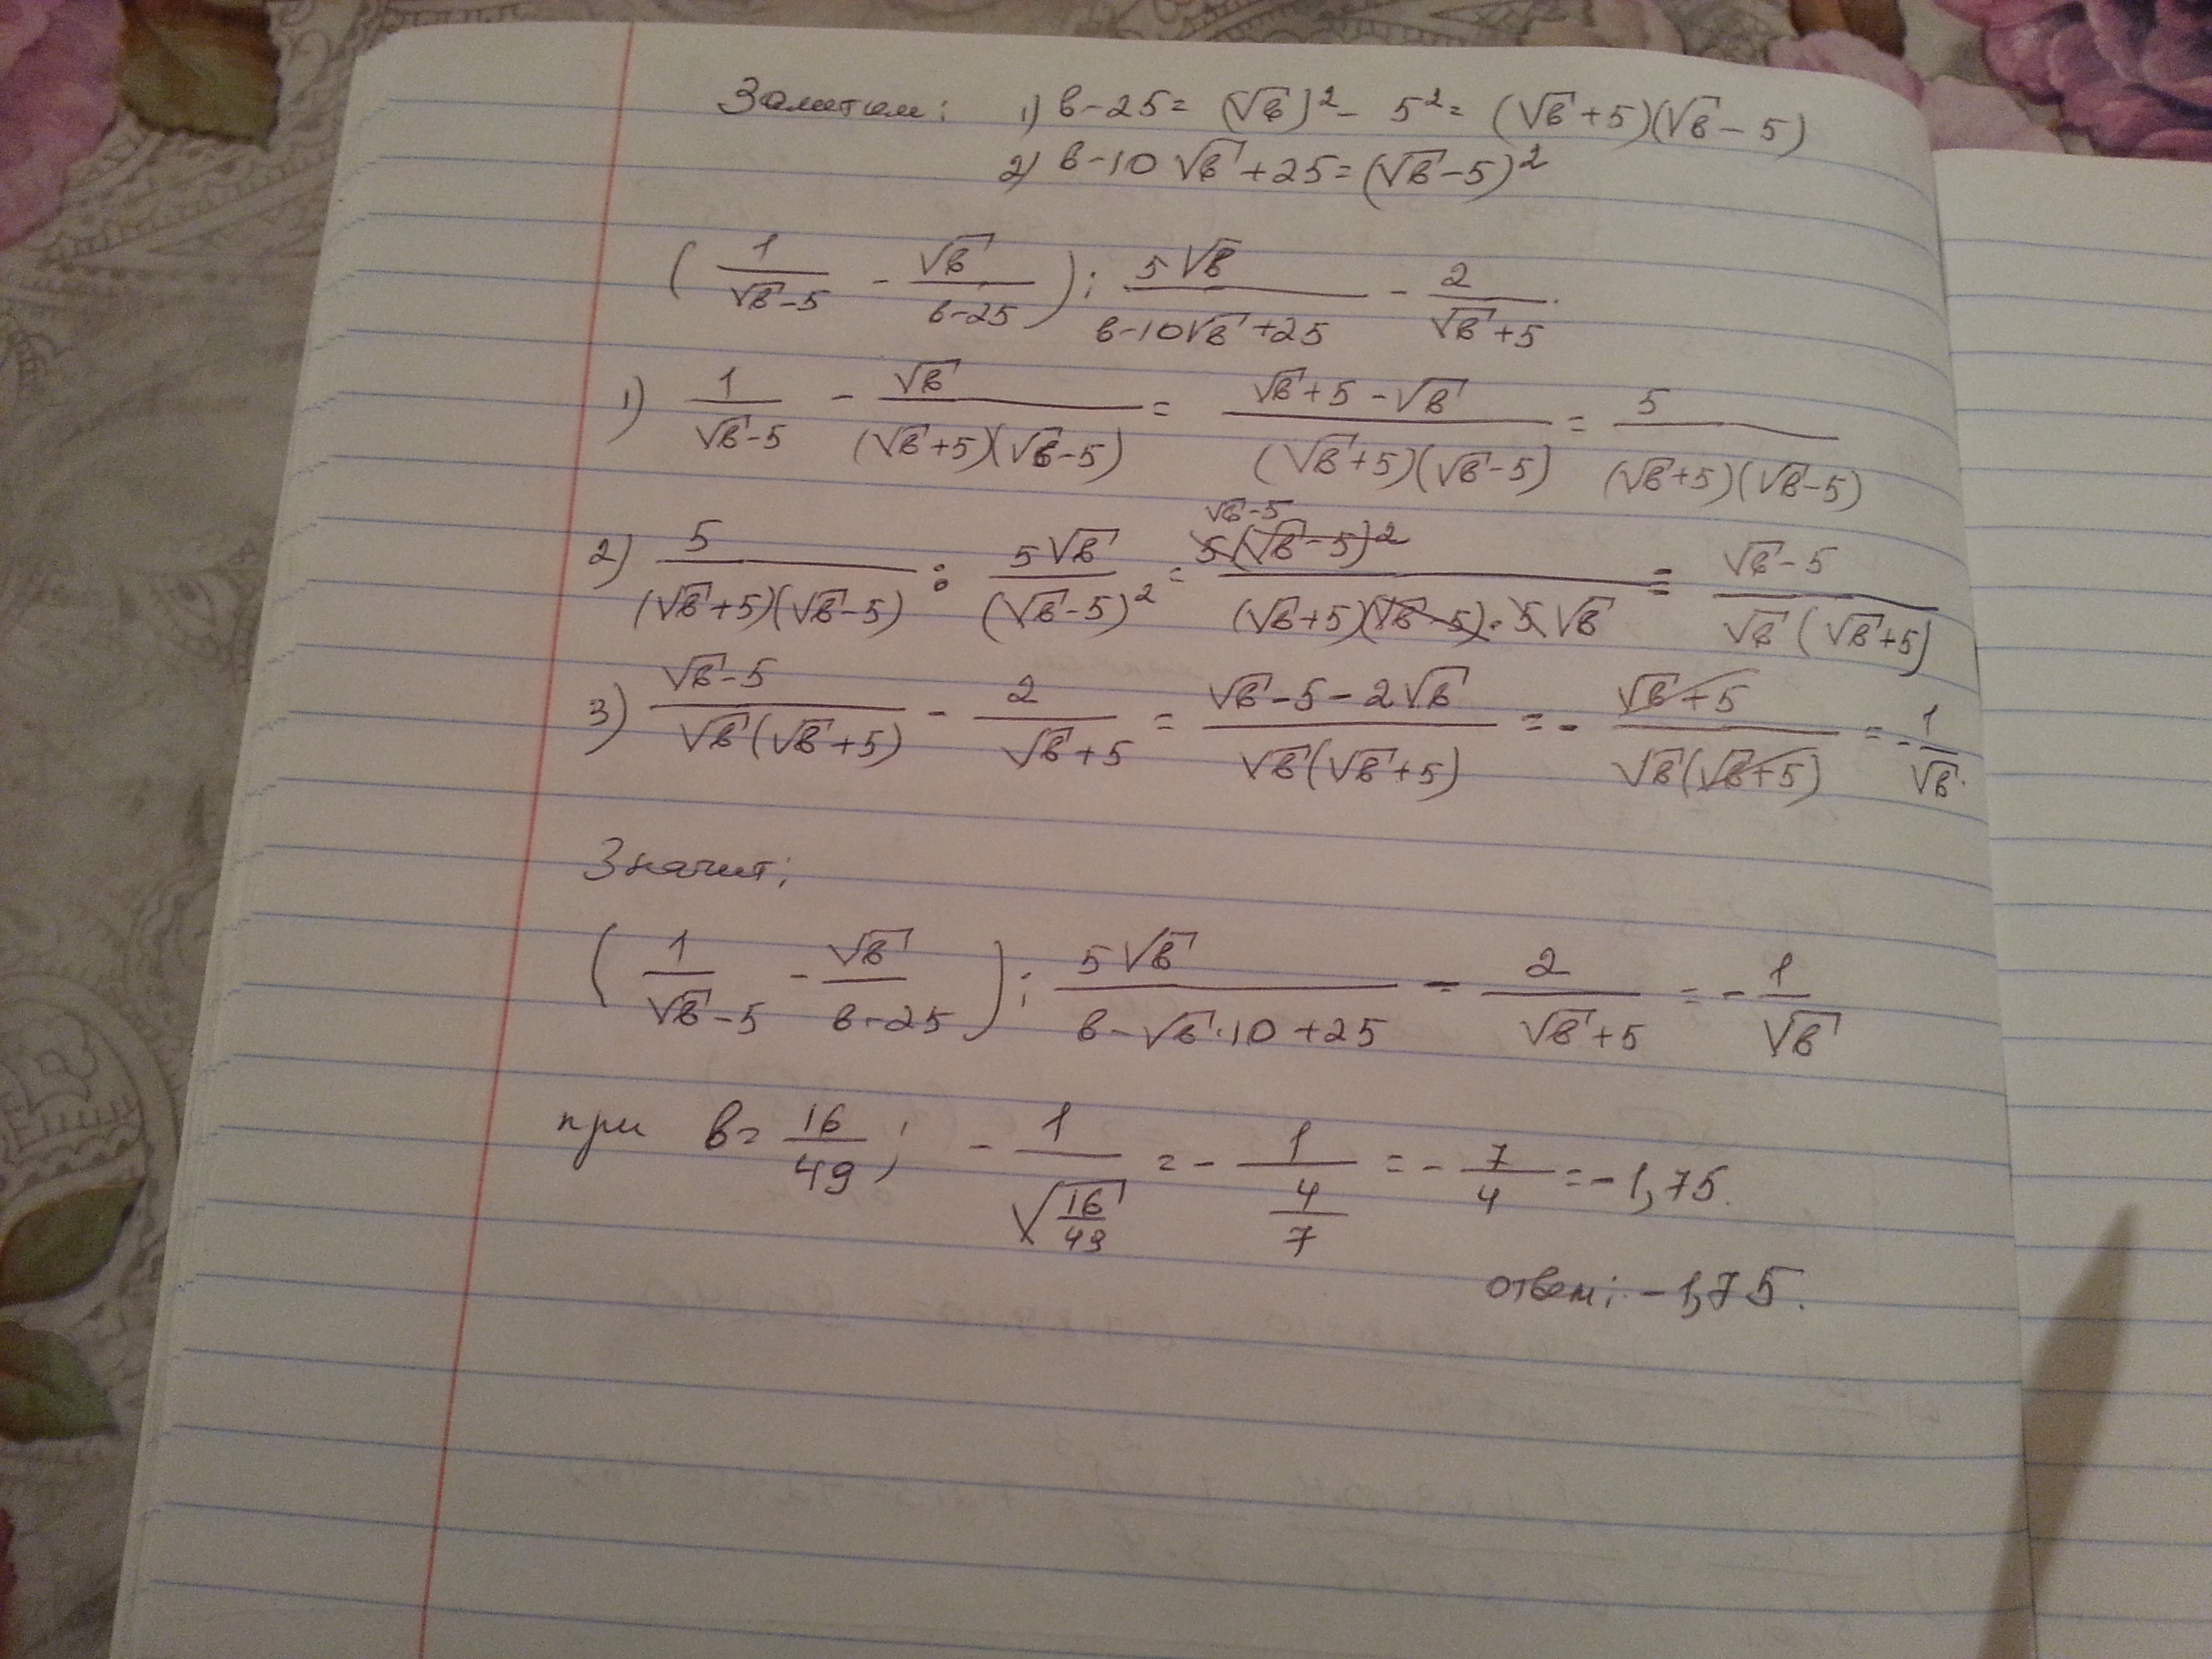 Заметим: 1) b-25 = (√b)² - 5² = (√b+5)(√b-5)
2) b-10√b+25 = (√b-5)²
(1/(√b-5) - √b/(b-25)) : 5√b/(b-10√b+25) - 2/(√b+5).
1) 1/(√b-5) - √b/((√b+5)(√b-5)) = (√b+5-√b)/((√b+5)(√b-5)) = 5/((√b+5)(√b-5))
√b-5
2) 5/((√b+5)(√b-5)) : 5√b/(√b-5)² = 5(√b-5)²/((√b+5)(√b-5)·5√b) = (√b-5)/(√b(√b+5))
3) (√b-5)/(√b(√b+5)) - 2/(√b+5) = (√b-5-2√b)/(√b(√b+5)) = - (√b+5)/(√b(√b+5)) = -1/√b.
Значит:
(1/(√b-5) - √b/(b-25)) : 5√b/(b-√b·10+25) - 2/(√b+5) = -1/√b
при b = 16/49; - 1/√(16/49) = - 1/(4/7) = - 7/4 = -1,75.
ответ: -1,75.